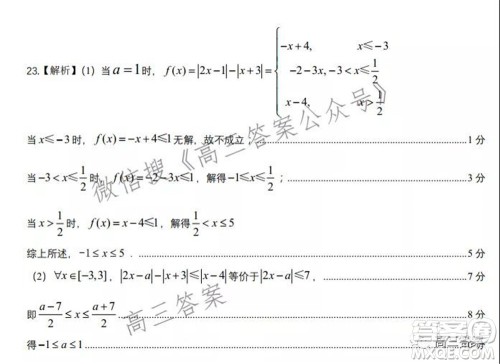 23.【解析】(1) 当 a=1 时，f(x)=|2x-1|-|x+3|={ -x+4, x≤-3
-2-3x, -3<x≤1/2
x-4, x>1/2
当 x≤-3 时，f(x)=-x+4≤1 无解，故不成立；1 分
当 -3<x≤1/2 时，f(x)=-2-3x≤1，解得 -1≤x≤1/2；3 分
当 x>1/2 时，f(x)=x-4≤1，解得 1/2<x≤5
综上所述，-1≤x≤5．5 分
(2) ∀x∈[-3,3]，|2x-a|-|x+3|≤|x-4| 等价于 |2x-a|≤7，7 分
即 (a-7)/2≤x≤(a+7)/2 8 分
得 -1≤a≤1
微信搜《高三答案公众号》
高三答案